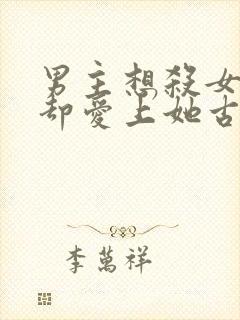 男主想殺女
却愛上她古
李萬祥